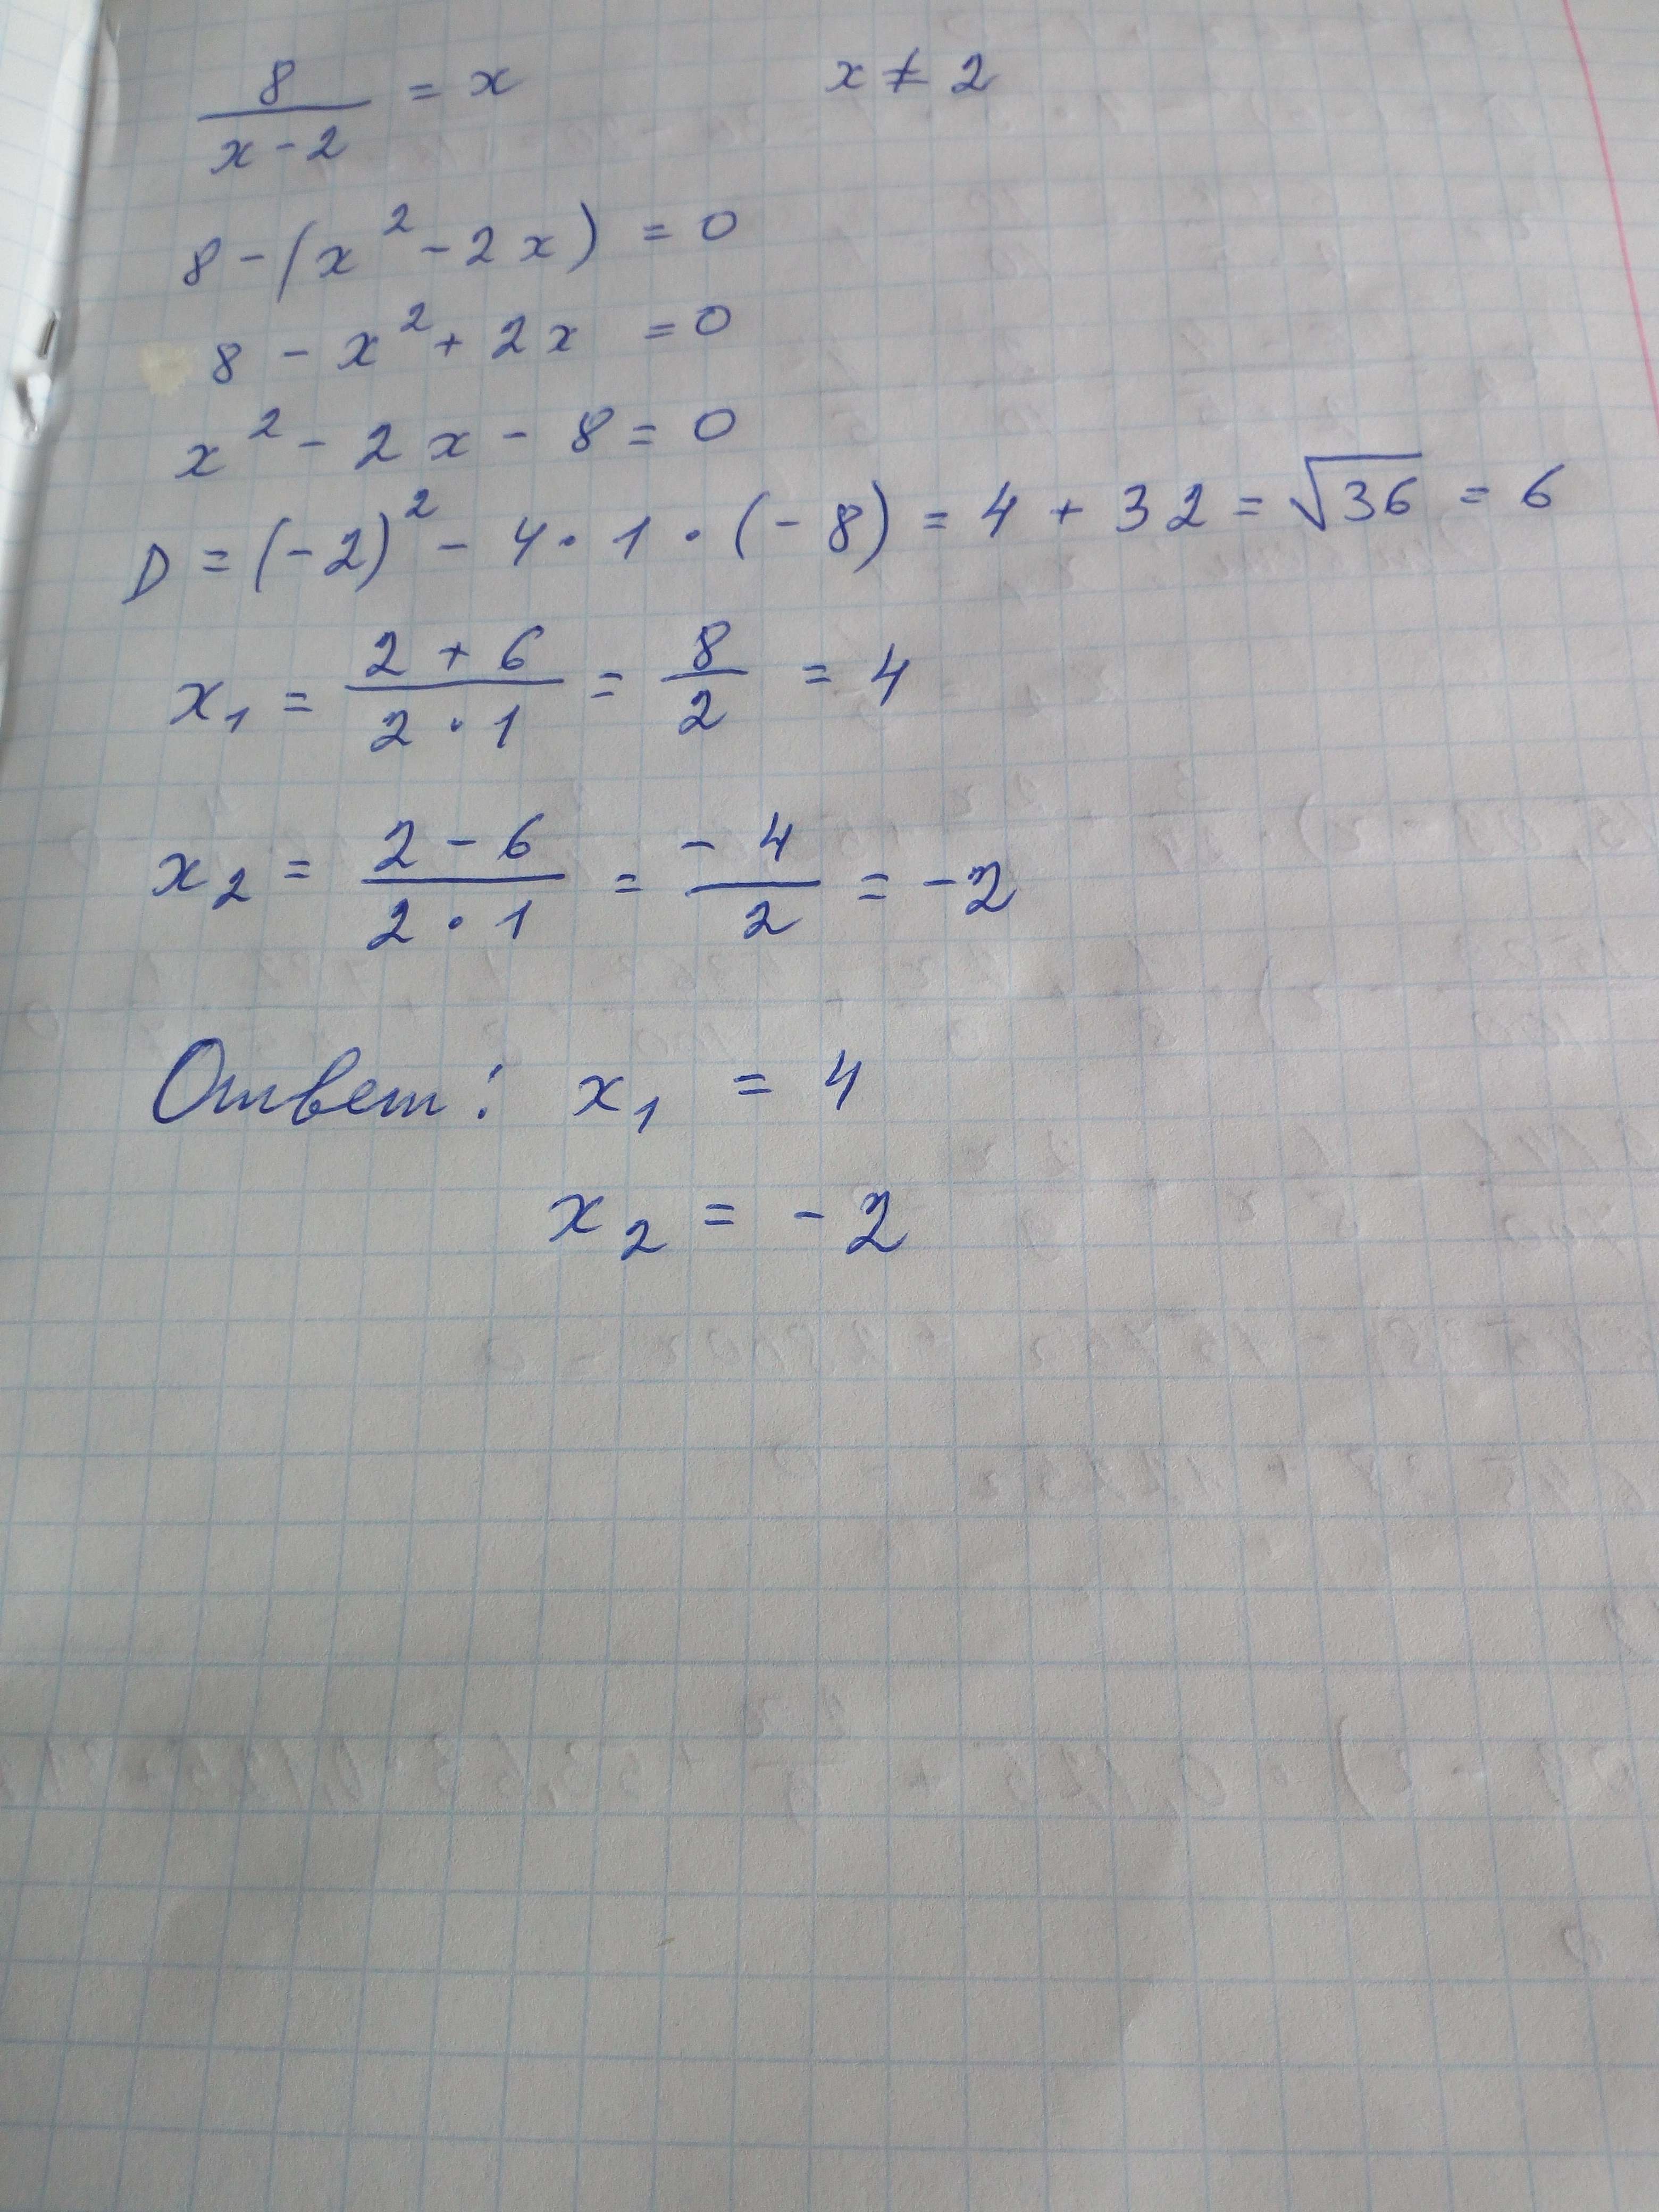 8/(x-2) = x x ≠ 2
8 - (x² - 2x) = 0
8 - x² + 2x = 0
x² - 2x - 8 = 0
D = (-2)² - 4 · 1 · (-8) = 4 + 32 = √36 = 6
x₁ = (2 + 6)/(2 · 1) = 8/2 = 4
x₂ = (2 - 6)/(2 · 1) = -4/2 = -2
Ответ: x₁ = 4
x₂ = -2